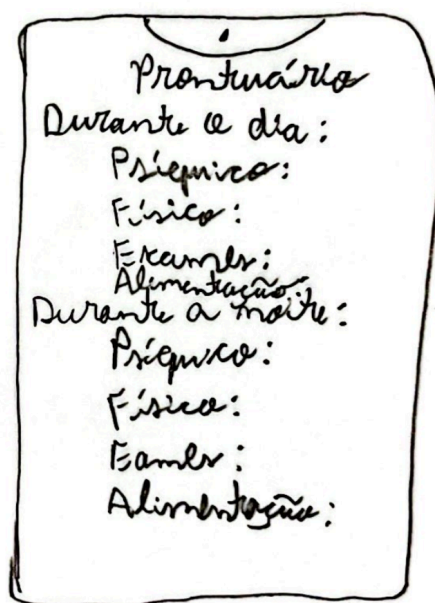 Prontuário
Durante o dia:
Psíquico:
Físico:
Exames:
Alimentação
Durante a noite:
Psíquico:
Físico:
Eames:
Alimentação: